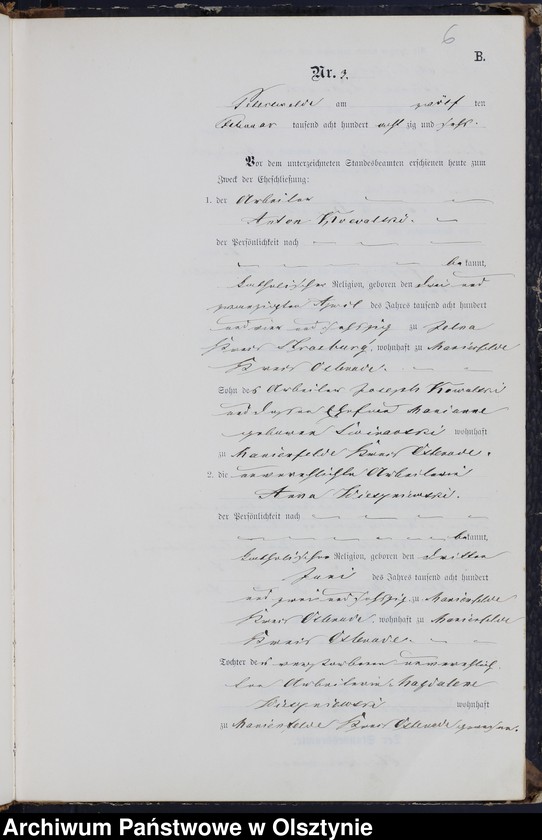 6
B.
Nr. 3.
am zwölf ten
Februar tausend acht hundert acht zig und sechs.
Vor dem unterzeichneten Standesbeamten erschienen heute zum
Zweck der Eheschließung:
1. der Arbeiter
Anton Kowalski.
der Persönlichkeit nach
bekannt,
katholischer Religion, geboren den drei und
zwanzigsten April des Jahres tausend acht hundert
und vier und sechszig zu
Kreis Strasburg, wohnhaft zu Marienfelde
Kreis Osterode.
Sohn des Arbeiter Joseph Kowalski
und dessen Ehefrau Marianne
geborene wohnhaft
zu Marienfelde Kreis Osterode.
2. die unverehelichte Arbeiterin
Anna
der Persönlichkeit nach
bekannt,
katholischer Religion, geboren den dritten
Juni des Jahres tausend acht hundert
und zwei und sechszig zu Marienfelde
Kreis Osterode, wohnhaft zu Marienfelde
Kreis Osterode.
Tochter der verstorbenen unverehelich
ten Arbeiterin Magdalene
wohnhaft
zu Marienfelde Kreis Osterode gewesen.
Archiwum Państwowe w Olsztynie